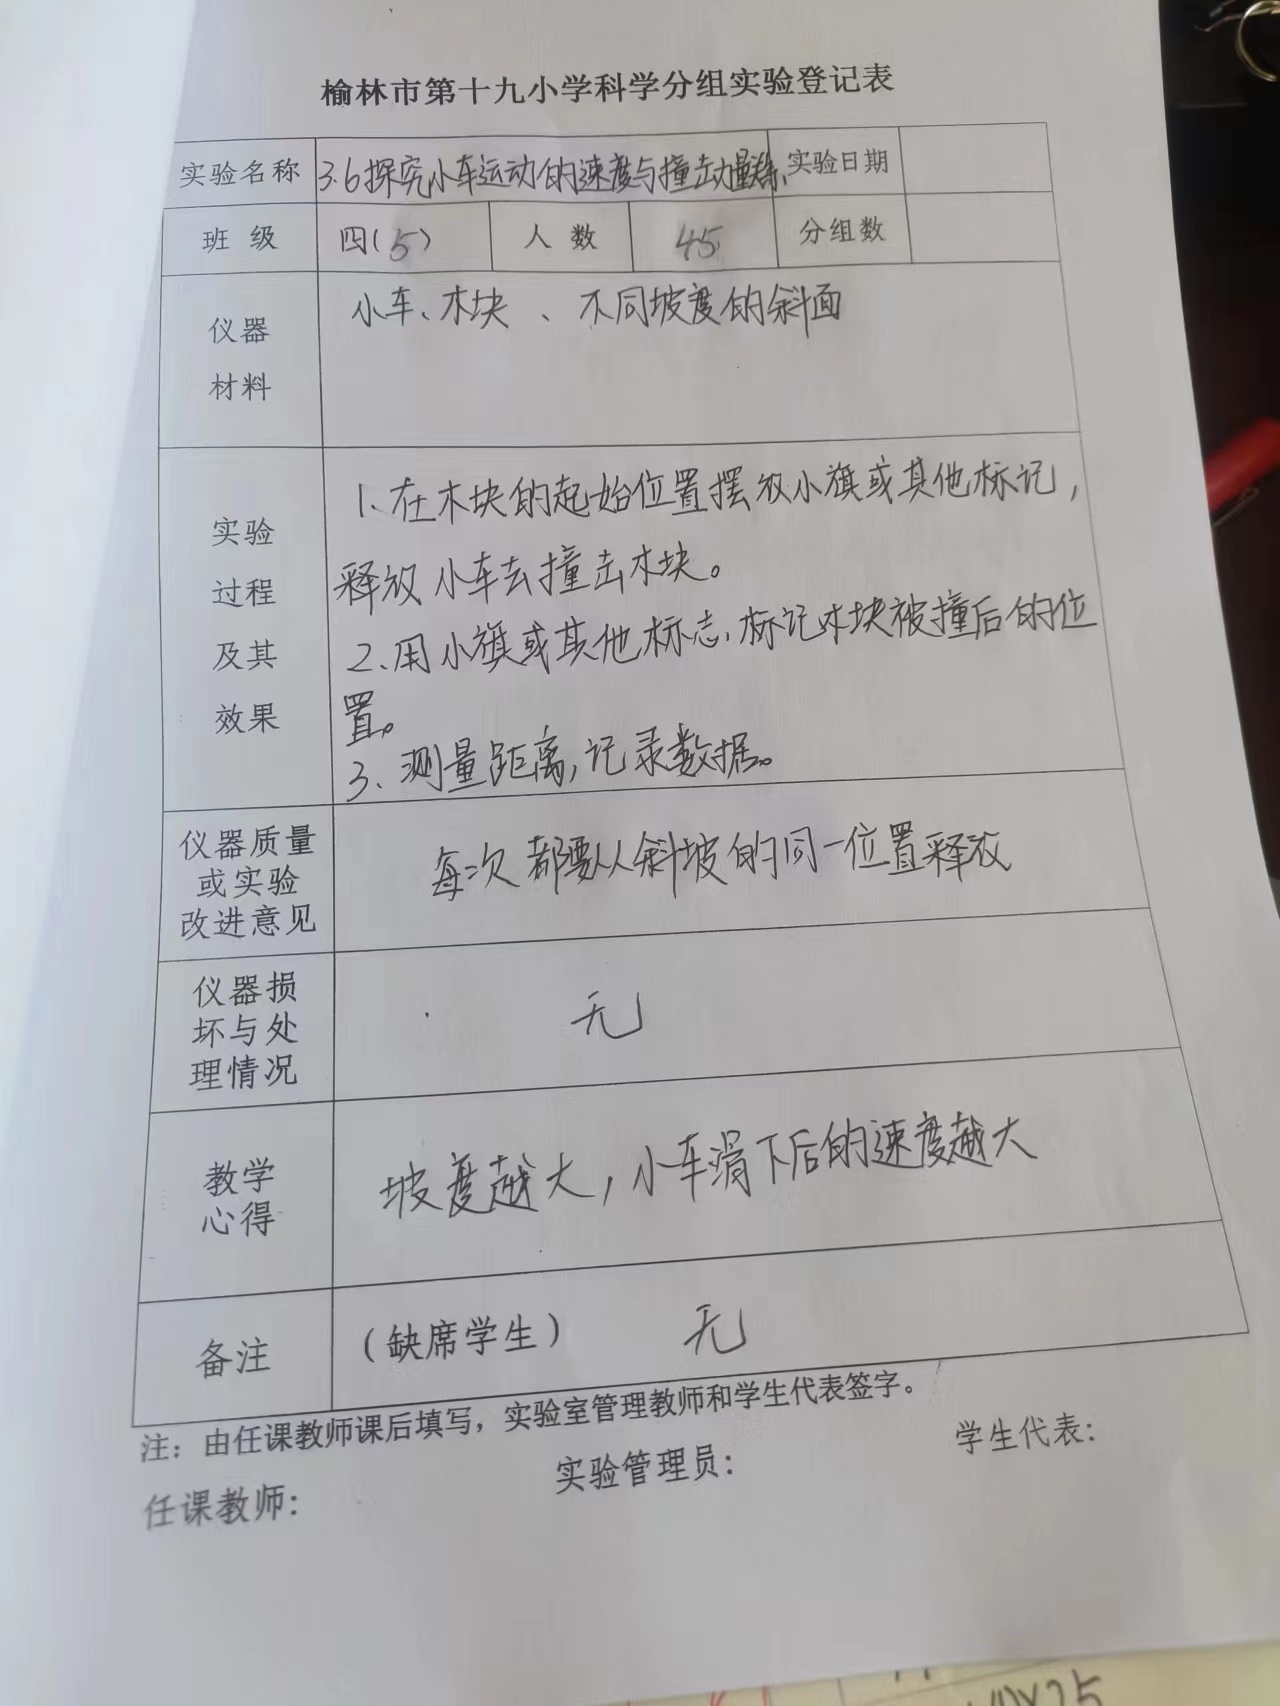 榆林市第十九小学科学分组实验登记表
实验名称 3.6探究小车运动的速度与撞击力量关系 实验日期
班 级 四(5) 人 数 45 分组数
仪器
材料
小车、木块 、不同坡度的斜面
实验
过程
及其
效果
1、在木块的起始位置摆放小旗或其他标记，
释放小车去撞击木块。
2、用小旗或其他标志，标记木块被撞后的位
置。
3、测量距离，记录数据。
仪器质量
或实验
改进意见
每次都要从斜坡的同一位置释放
仪器损
坏与处
理情况
无
教学
心得
坡度越大，小车滑下后的速度越大
备注
（缺席学生） 无
注：由任课教师课后填写，实验室管理教师和学生代表签字。
任课教师： 实验管理员： 学生代表：